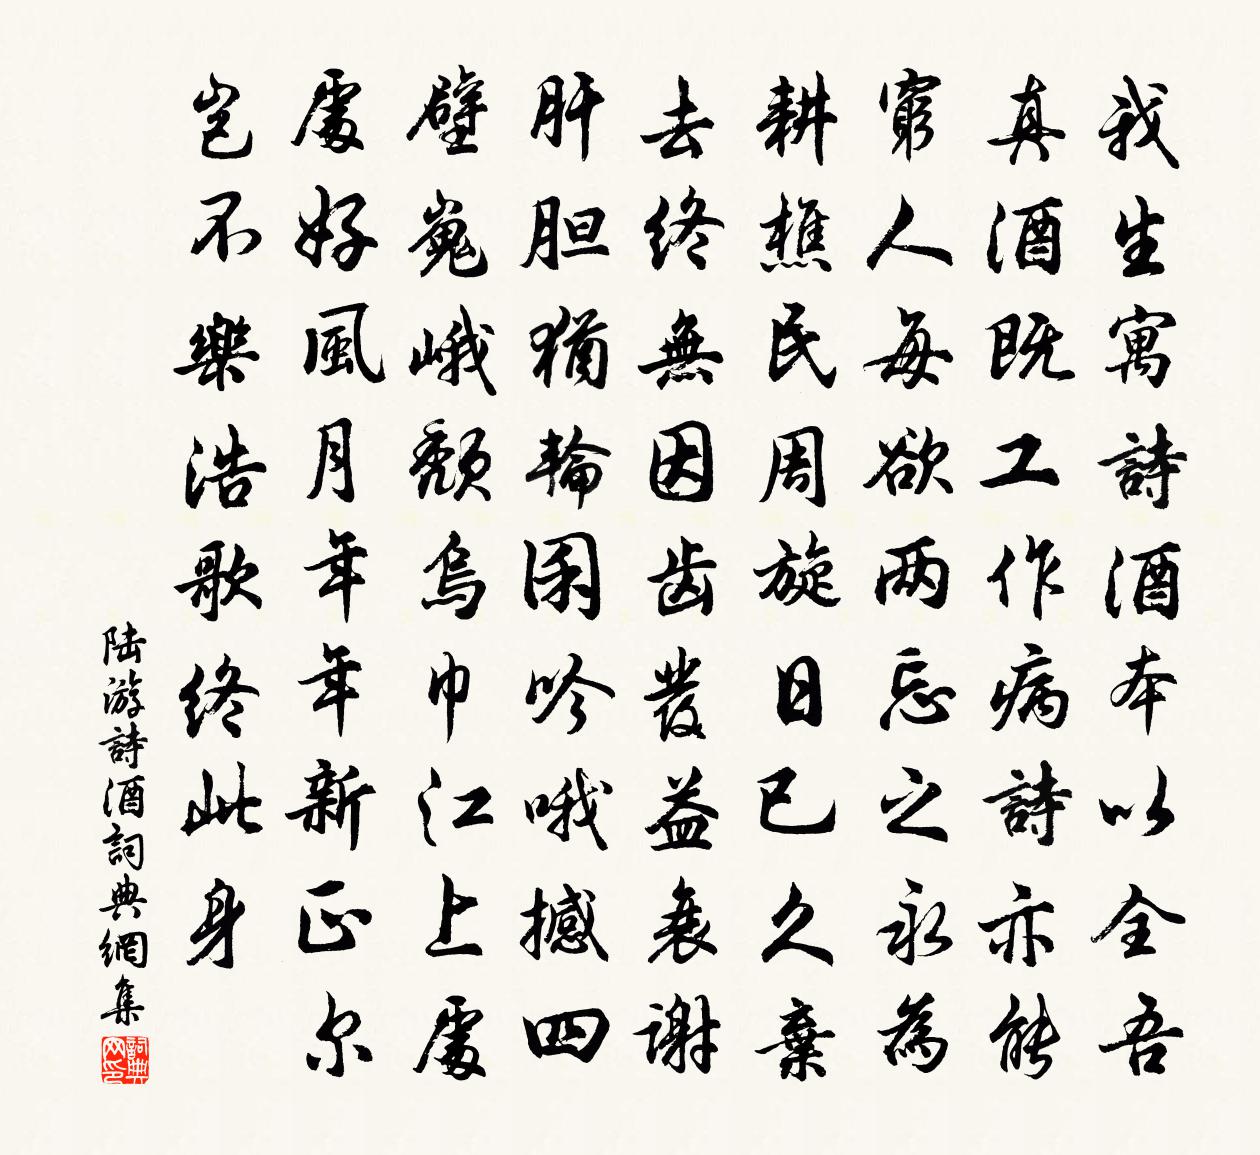 我生寓詩酒本以全吾
真酒既工作病詩亦能
窮人每欲两忘之永為
耕樵民周旋日已久棄
去終無因齿發益衰謝
肝胆猶輪囷吟哦撼四
壁嵬峨頹烏巾江上處
處好風月年年新正尔
豈不樂浩歌終此身
陆游詩酒詞典網集
詞典网印